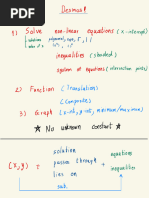 Desmos
1) Solve non-linear equations (x-intercept)
inequalities (shaded)
system of equations (intersection points)
2) Function (Translations)
(Composite)
3) Graph (x-int, y-int, minimum/maximum)
★ No unknown constant ★
(x,y) → solution
passes through
lies on
sub.
+ equations
inequalities